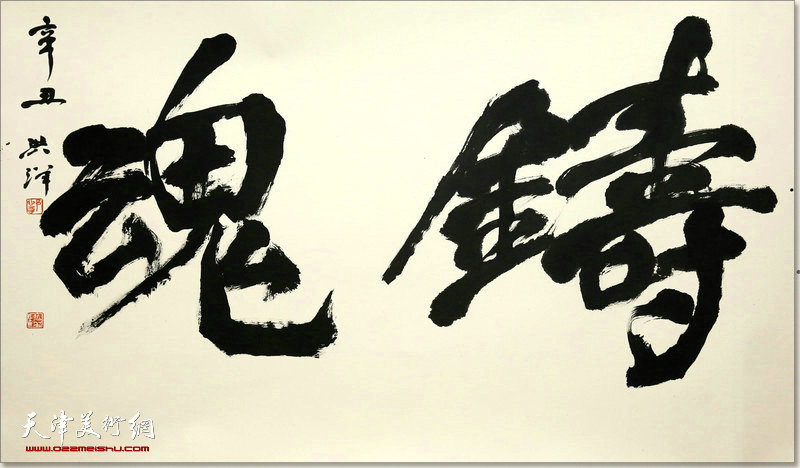 鑄魂
辛丑
洪洋
天津美術網
www.022meishu.com